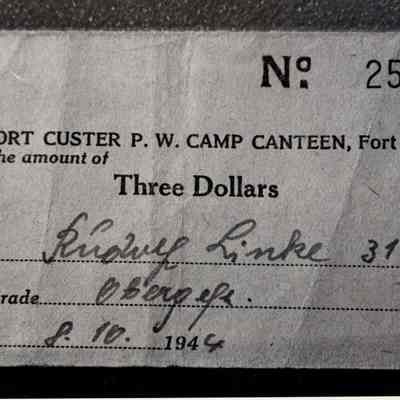 Nº. 25
ORT CUSTER P. W. CAMP CANTEEN, Fort
he amount of
Three Dollars
Rudwg Linke 31
rade Obergefr.
8. 10. 1944